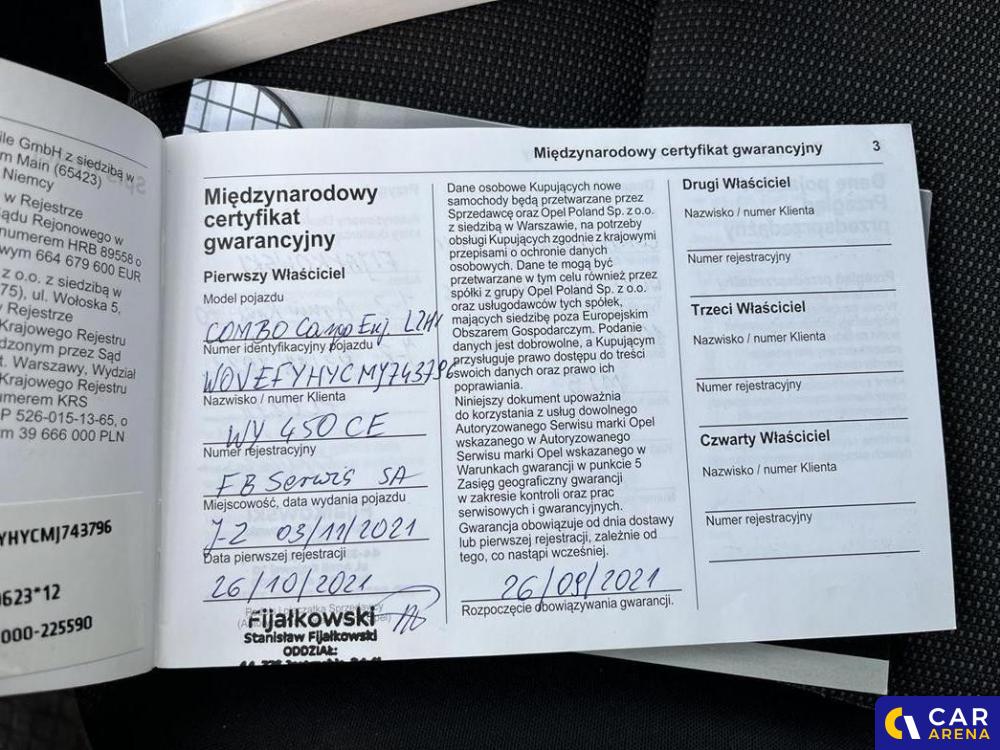 ile GmbH z siedzibą w
m Main (65423)
Niemcy
w Rejestrze
ądu Rejonowego w
numerem HRB 89558 o
wym 664 679 600 EUR
z o.o. z siedzibą w
75), ul. Wołoska 5,
Rejestrze
Krajowego Rejestru
dzonym przez Sąd
t. Warszawy, Wydział
Krajowego Rejestru
umerem KRS
P 526-015-13-65, o
m 39 666 000 PLN
YHYCMJ743796
0623*12
000-225590
Międzynarodowy certyfikat gwarancyjny 3
Międzynarodowy
certyfikat
gwarancyjny
Pierwszy Właściciel
Model pojazdu
COMBO Cargo Enj. L2H1
Numer identyfikacyjny pojazdu
W0VEFYHYCMJ743796
Nazwisko / numer Klienta
WY 450CE
Numer rejestracyjny
FB Serwis SA
Miejscowość, data wydania pojazdu
J-Z 03/11/2021
Data pierwszej rejestracji
26/10/2021
Fijałkowski
Stanisław Fijałkowski
ODDZIAŁ:
Dane osobowe Kupujących nowe
samochody będą przetwarzane przez
Sprzedawcę oraz Opel Poland Sp. z o.o.
z siedzibą w Warszawie, na potrzeby
obsługi Kupujących zgodnie z krajowymi
przepisami o ochronie danych
osobowych. Dane te mogą być
przetwarzane w tym celu również przez
spółki z grupy Opel Poland Sp. z o.o.
oraz usługodawców tych spółek,
mających siedzibę poza Europejskim
Obszarem Gospodarczym. Podanie
danych jest dobrowolne, a Kupującym
przysługuje prawo dostępu do treści
swoich danych oraz prawo ich
poprawiania.
Niniejszy dokument upoważnia
do korzystania z usług dowolnego
Autoryzowanego Serwisu marki Opel
wskazanego w Autoryzowanego
Serwisu marki Opel wskazanego w
Warunkach gwarancji w punkcie 5
Zasięg geograficzny gwarancji
w zakresie kontroli oraz prac
serwisowych i gwarancyjnych.
Gwarancja obowiązuje od dnia dostawy
lub pierwszej rejestracji, zależnie od
tego, co nastąpi wcześniej.
26/09/2021
Rozpoczęcie obowiązywania gwarancji.
Drugi Właściciel
Nazwisko / numer Klienta
Numer rejestracyjny
Trzeci Właściciel
Nazwisko / numer Klienta
Numer rejestracyjny
Czwarty Właściciel
Nazwisko / numer Klienta
Numer rejestracyjny
CAR
ARENA